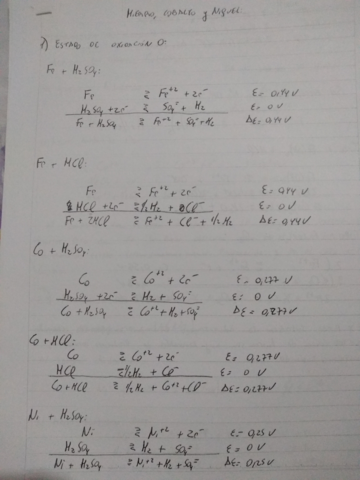 Hierro, cobalto y Níquel
1) Estado de oxidación 0:
Fe + H₂SO₄:
Fe ⇄ Fe⁺² + 2e⁻ ε= 0,44 V
H₂SO₄ + 2e⁻ ⇄ SO₄⁼ + H₂ ε= 0 V
Fe + H₂SO₄ ⇄ Fe⁺² + SO₄⁼ + H₂ Δε= 0,44 V
Fe + HCl:
Fe ⇄ Fe⁺² + 2e⁻ ε= 0,44 V
HCl + 2e⁻ ⇄ 1/2 H₂ + Cl⁻ ε= 0 V
Fe + 2HCl ⇄ Fe⁺² + Cl⁻ + 1/2 H₂ Δε= 0,44 V
Co + H₂SO₄:
Co ⇄ Co⁺² + 2e⁻ ε= 0,277 V
H₂SO₄ + 2e⁻ ⇄ H₂ + SO₄⁼ ε= 0 V
Co + H₂SO₄ ⇄ Co⁺² + H₂ + SO₄⁼ Δε= 0,277 V
Co + HCl:
Co ⇄ Co⁺² + 2e⁻ ε= 0,277 V
HCl ⇄ 1/2 H₂ + Cl⁻ ε= 0 V
Co + HCl ⇄ 1/2 H₂ + Co⁺² + Cl⁻ Δε= 0,277 V
Ni + H₂SO₄:
Ni ⇄ Ni⁺² + 2e⁻ ε= 0,25 V
H₂SO₄ ⇄ H₂ + SO₄⁼ ε= 0 V
Ni + H₂SO₄ ⇄ Ni⁺² + H₂ + SO₄⁼ Δε= 0,25 V